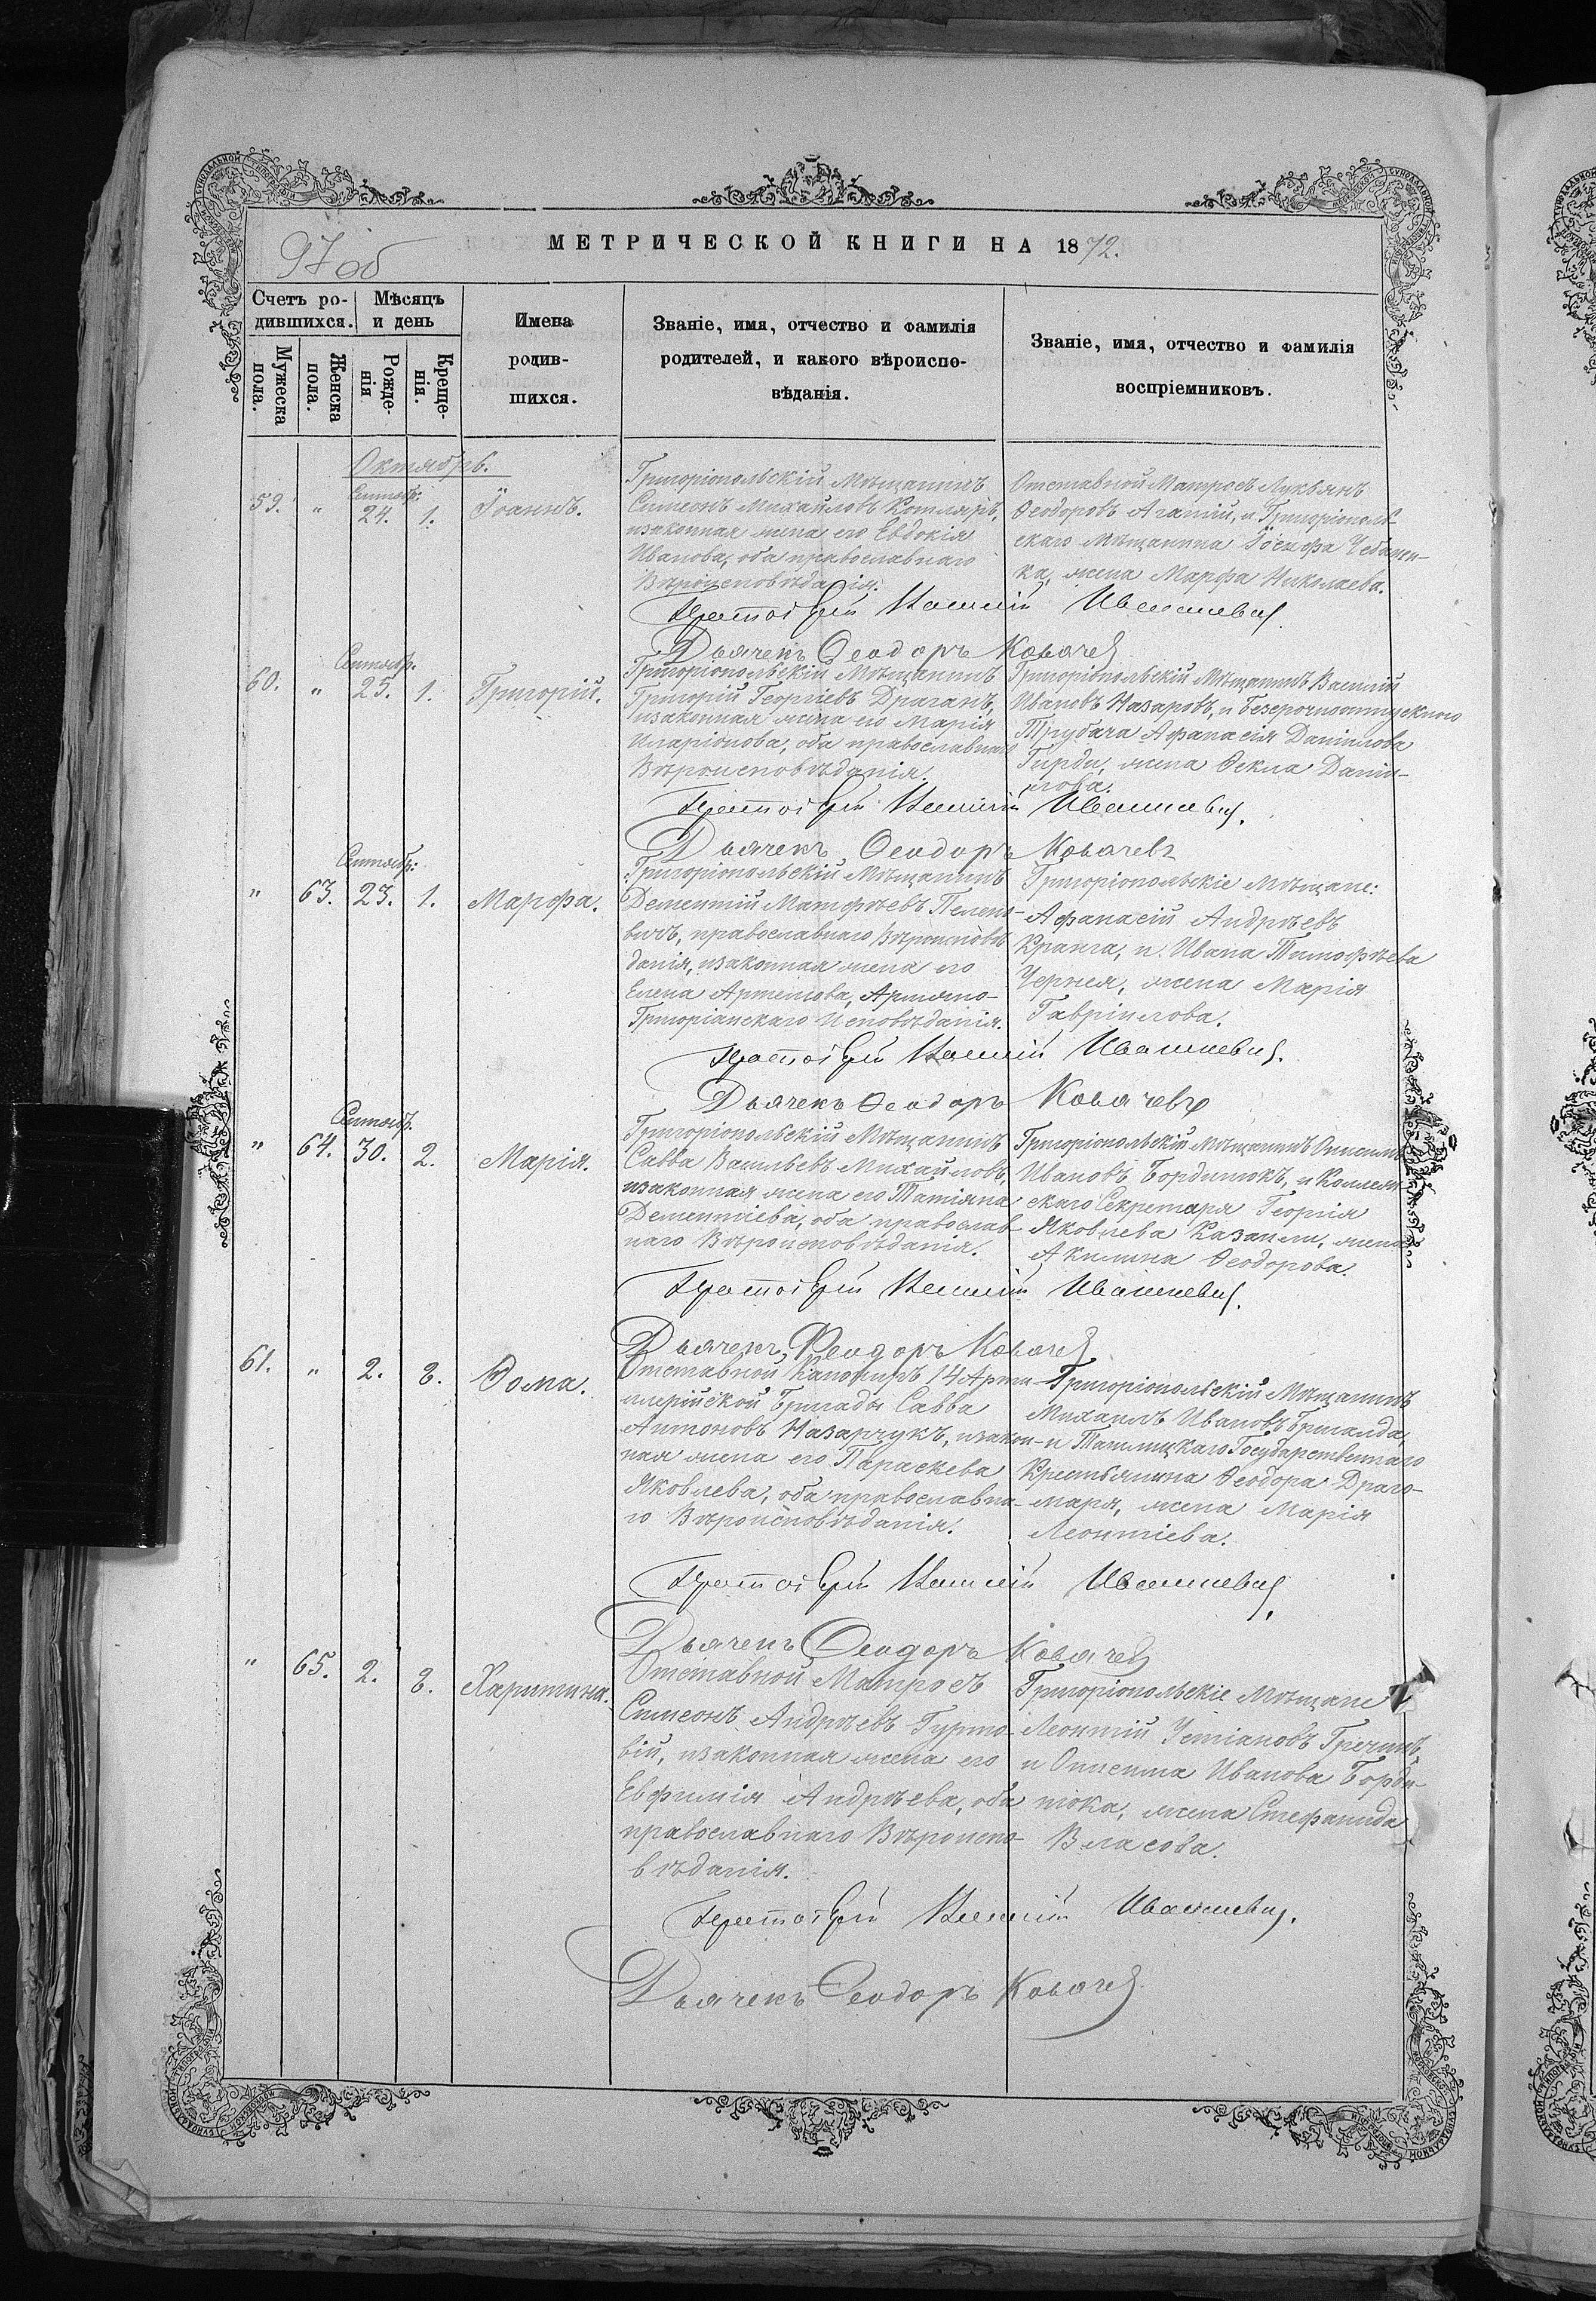 97 об
МЕТРИЧЕСКОЙ КНИГИ НА 1872.
Счетъ ро-
дившихся.
Мѣсяцъ
и день
Имена
родив-
шихся.
Званіе, имя, отчество и фамилія
родителей, и какого вѣроиспо-
вѣданія.
Званіе, имя, отчество и фамилія
воспріемниковъ.
Мужеска
пола.
Женска
пола.
Рожде-
нія
Креще-
нія.
Октябрь.
59. " Сентябр: 24. 1. Іоаннъ.
Григоріопольскій Мѣщанинъ
Симеонъ Михайловъ Котляръ,
изаконная жена его Евдокія
Иванова, оба православнаго
Вѣроисповѣданія.
Отставной Матросъ Лукьянъ
Ѳеодоровъ Агатій, и Григоріополь-
скаго Мѣщанина Іосифа Чебанен-
ка, жена Марфа Николаева.
Протоіерей Ивашкевич.
Дьячекъ Ѳеодоръ Ковачевъ
60. " Сентябр. 25. 1. Григорій.
Григоріопольскій Мѣщанинъ
Григорій Георгіевъ Драганъ,
изаконная жена его Марія
Иларіонова, оба православнаго
Вѣроисповѣданія.
Григоріопольскій Мѣщанинъ Василій
Ивановъ Назаровъ, и безсрочноотпускного
Трубача Аѳанасія Даніилова
Гирди, жена Ѳекла Даніи-
лова.
Протоіерей Ивашкевич.
Дьячекъ Ѳеодоръ Ковачевъ
" 63. Сентябр: 23. 1. Марфа.
Григоріопольскій Мѣщанинъ
Дементій Матфѣевъ Пелено-
вичъ, православнаго Вѣроисповѣ
данія, изаконная жена его
Елена Артемова, Армяно-
Григоріанскаго Исповѣданія.
Григоріопольскіе Мѣщане:
Афанасій Андрѣевъ
Кранга, и Ивана Тимофѣева
Чернея, жена Марія
Гавріилова.
Протоіерей Ивашкевич.
Дьячекъ Ѳеодоръ Ковачевъ
" 64. Сентябр. 30. 2. Марія.
Григоріопольскій Мѣщанинъ
Савва Васильевъ Михайловъ,
изаконная жена его Татіяна
Дементіева, оба православ-
наго Вѣроисповѣданія.
Григоріопольскій Мѣщанинъ
Ивановъ Бордитокъ, и Коллеж
скаго Секретаря Георгія
Яковлева жена
Акилина Ѳеодорова.
Протоіерей Ивашкевич.
Дьячекъ Ѳеодоръ Ковачевъ
61. " 2. 8. Ѳома.
Отставной Канониръ 14 Арти-
лерійской Бригады Савва
Антоновъ Назарчукъ, изакон-
ная жена его Параскева
Яковлева, оба православна-
го Вѣроисповѣданія.
Григоріопольскій Мѣщанинъ
Михаилъ Ивановъ
и Ташлицкаго Государственнаго
Крестьянина Ѳеодора Драго-
маря, жена Марія
Леонтіева.
Протоіерей Ивашкевич.
Дьячекъ Ѳеодоръ Ковачевъ
" 65. 2. 8. Харитина.
Отставной Матросъ
Симеонъ Андрѣевъ Гурто-
вій, изаконная жена его
Евфимія Андрѣева, оба
православнаго Вѣроиспо-
вѣданія.
Григоріопольскіе Мѣщане
Леонтій Устіановъ
и Иванова Борди-
тока, жена Стефанида
Власова.
Протоіерей Ивашкевич.
Дьячекъ Ѳеодоръ Ковачевъ